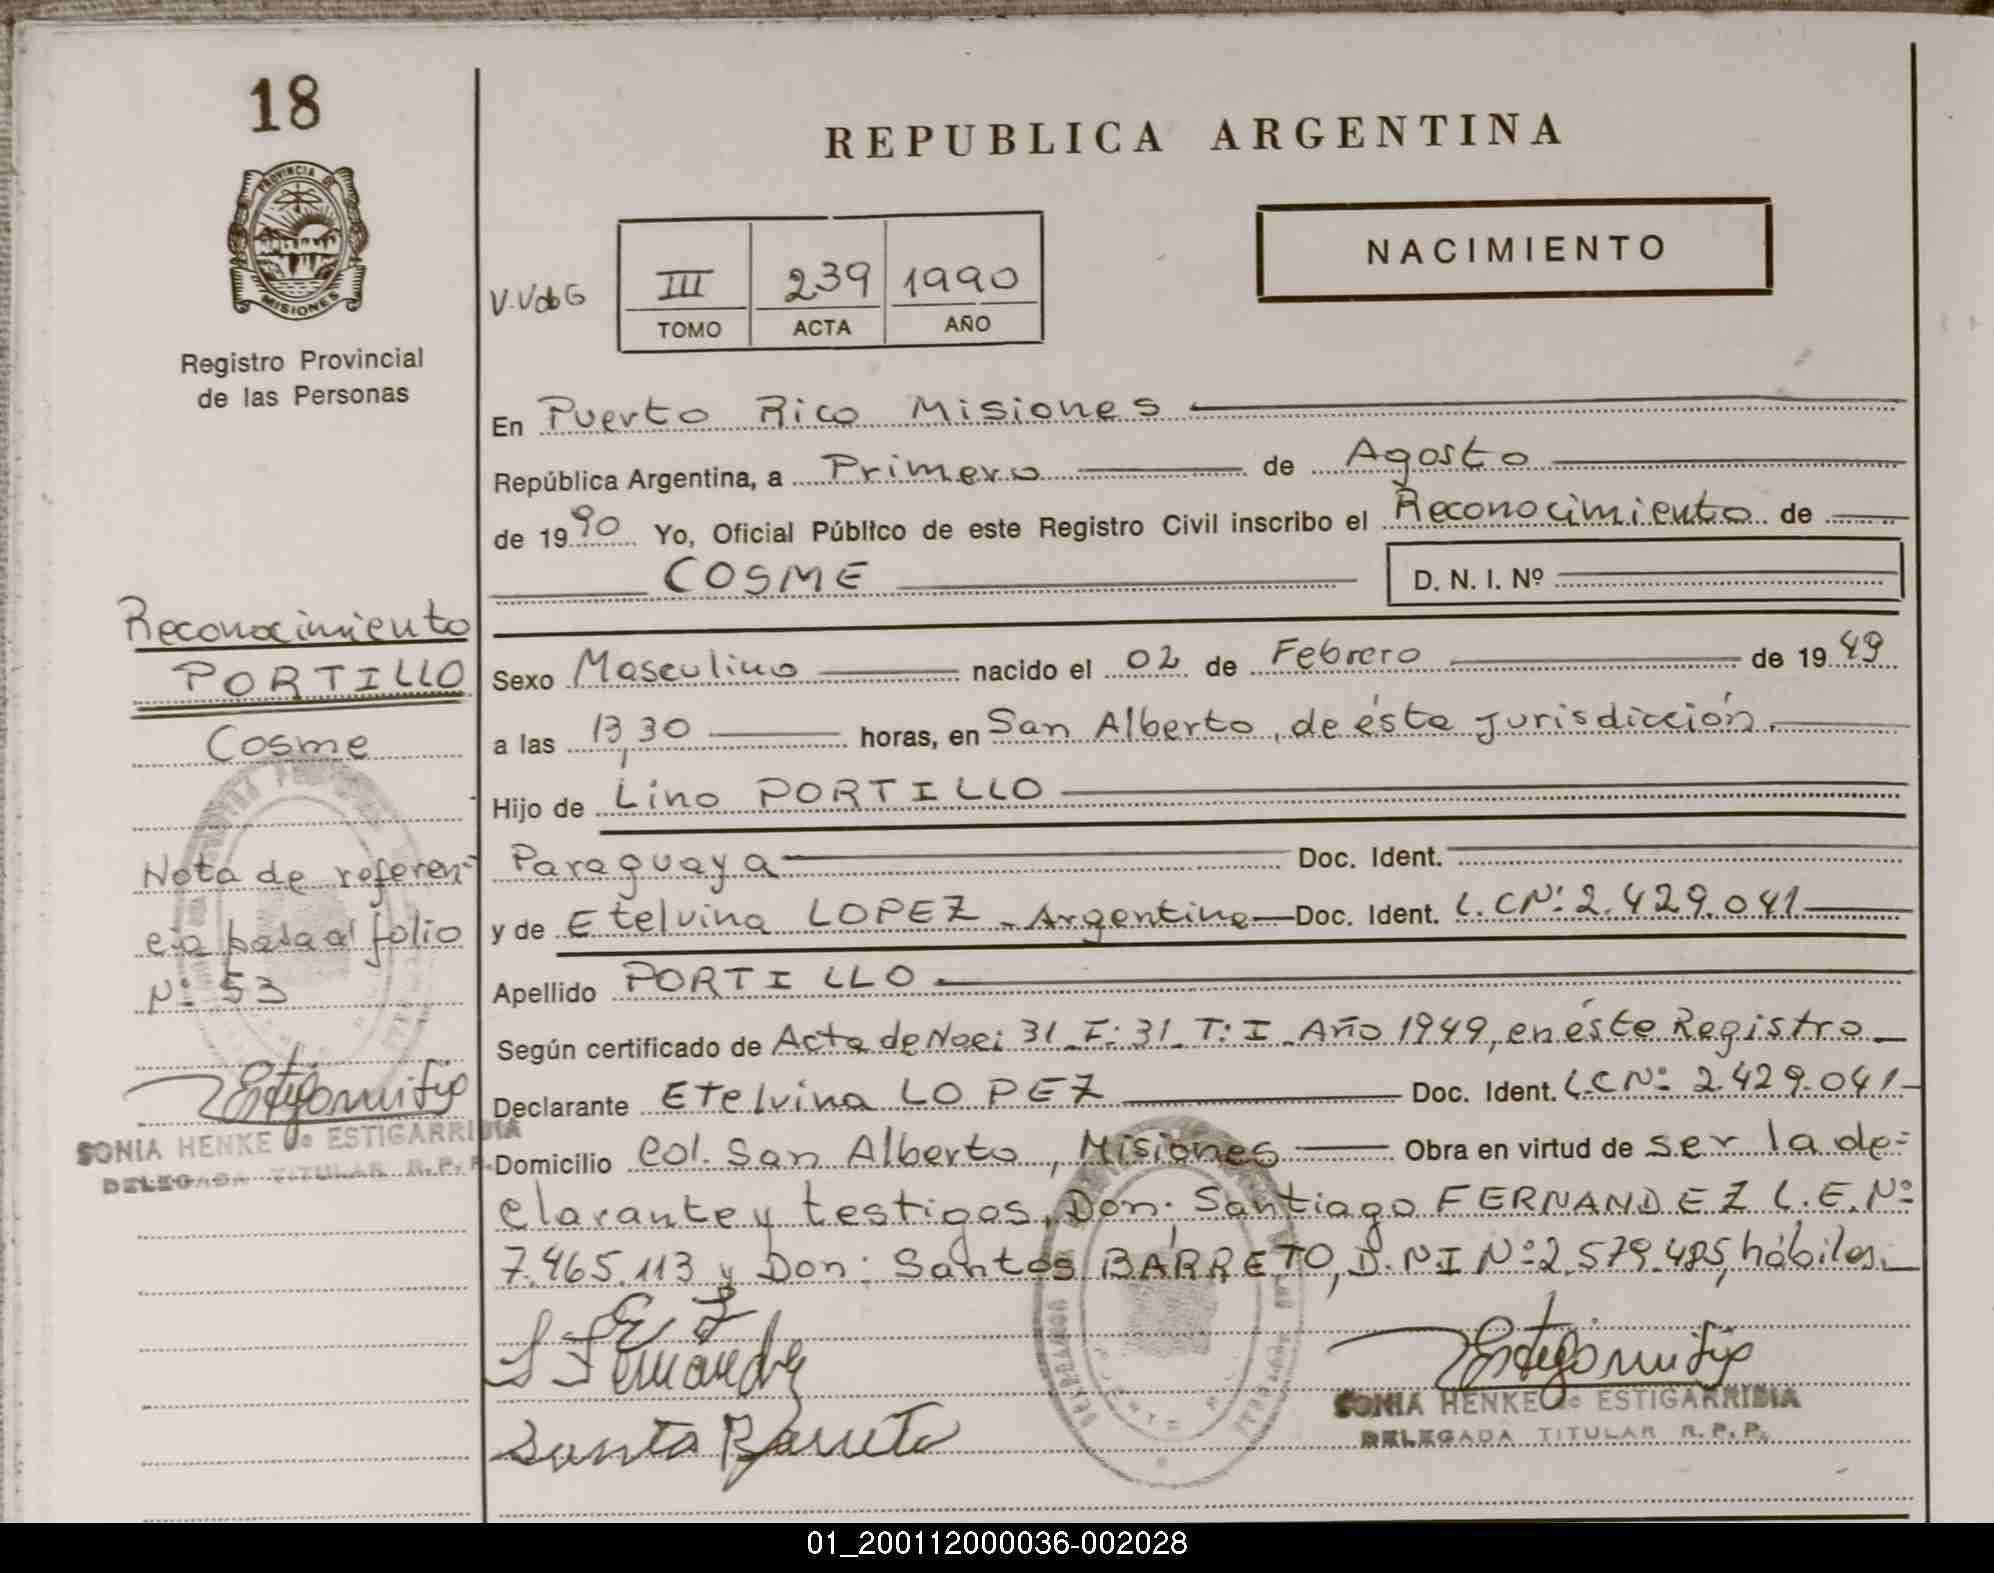 18
REPUBLICA ARGENTINA
PROVINCIA DE
MISIONES
NACIMIENTO
III 239 1990
TOMO ACTA AÑO
Registro Provincial
de las Personas
En Puerto Rico Misiones
República Argentina, a Primero de Agosto
de 1990 Yo, Oficial Público de este Registro Civil inscribo el Reconocimiento de
COSME D. N. I. Nº
Reconocimiento
PORTILLO
Cosme
Sexo Masculino nacido el 02 de Febrero de 1949
a las 13,30 horas, en San Alberto, de ésta jurisdicción.
Hijo de Lino PORTILLO
Paraguaya Doc. Ident.
y de Etelvina LOPEZ - Argentina Doc. Ident. L.C Nº: 2.429.041
Apellido PORTILLO
Nota de referen-
cia pasa al folio
Nº 53
Según certificado de Acta de Naci 31 F: 31 T: I Año 1949, en éste Registro
Declarante Etelvina LOPEZ Doc. Ident. L.C Nº 2.429.041
Domicilio Col. San Alberto, Misiones Obra en virtud de ser la de-
clarante y testigos, Don: Santiago FERNANDEZ L.E. Nº
7.465.113 y Don: Santos BARRETO, D.N.I Nº 2.579.485, hábiles.
SONIA HENKE de ESTIGARRIBIA
DELEGADA TITULAR R.P.P.
S Fernandez
Santo Barreto
SONIA HENKE de ESTIGARRIBIA
DELEGADA TITULAR R.P.P.
01_200112000036-002028